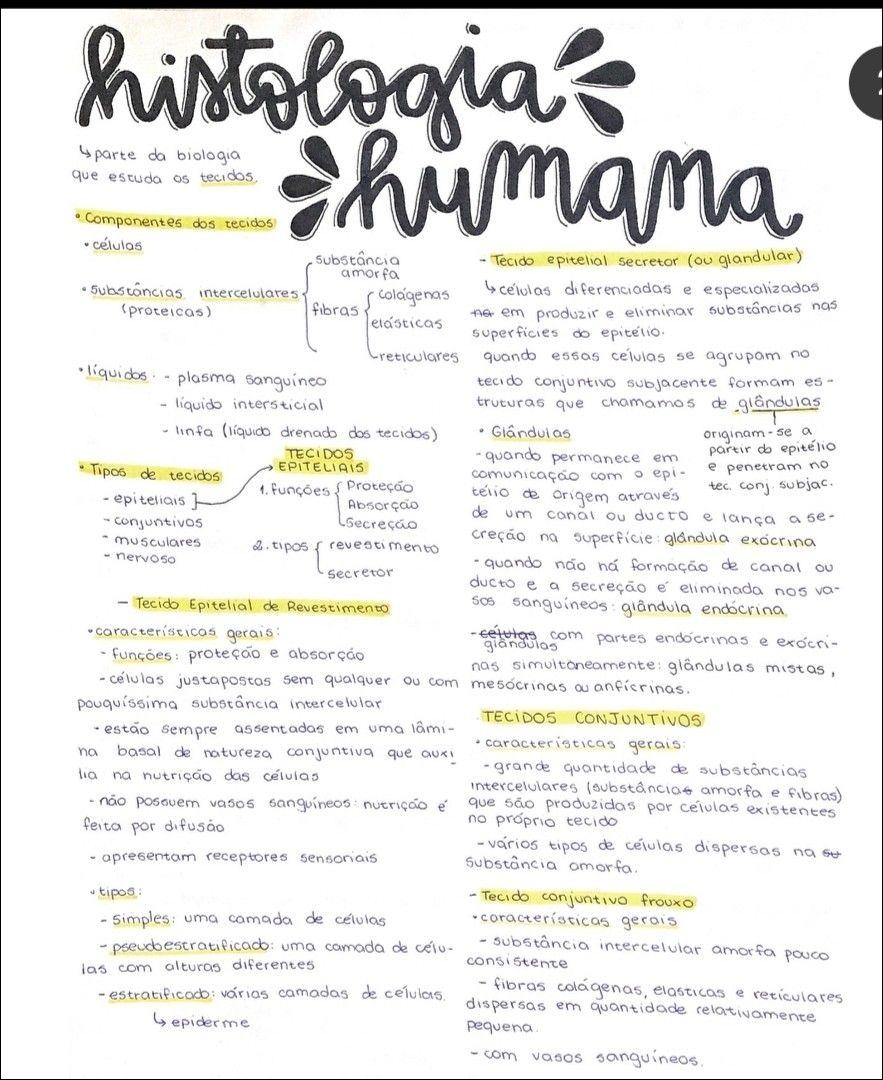 histologia
humana
↳ parte da biologia
que estuda os tecidos.
• Componentes dos tecidos
• células
• substâncias intercelulares
(proteicas)
substância
amorfa
fibras
colágenas
elásticas
reticulares
• líquidos: - plasma sanguíneo
- líquido intersticial
- linfa (líquido drenado dos tecidos)
• Tipos de tecidos
- epiteliais
- conjuntivos
- musculares
- nervoso
TECIDOS
EPITELIAIS
1. funções
Proteção
Absorção
Secreção
2. tipos
revestimento
secretor
- Tecido Epitelial de Revestimento
• características gerais:
- funções: proteção e absorção
- células justapostas sem qualquer ou com
pouquíssima substância intercelular
- estão sempre assentadas em uma lâmi-
na basal de natureza conjuntiva que auxi
lia na nutrição das células
- não possuem vasos sanguíneos: nutrição é
feita por difusão
- apresentam receptores sensoriais
• tipos:
- simples: uma camada de células
- pseudoestratificado: uma camada de célu-
las com alturas diferentes
- estratificado: várias camadas de células.
↳ epiderme
- Tecido epitelial secretor (ou glandular)
↳ células diferenciadas e especializadas
na em produzir e eliminar substâncias nas
superfícies do epitélio.
quando essas células se agrupam no
tecido conjuntivo subjacente formam es-
truturas que chamamos de glândulas
originam-se a
partir do epitélio
e penetram no
tec. conj. subjac.
• Glândulas
- quando permanece em
comunicação com o epi-
télio de origem através
de um canal ou ducto e lança a se-
creção na superfície: glândula exócrina
- quando não há formação de canal ou
ducto e a secreção é eliminada nos va-
sos sanguíneos: glândula endócrina
- células com partes endócrinas e exócri-
glândulas
nas simultâneamente: glândulas mistas,
mesócrinas ou anfícrinas.
TECIDOS CONJUNTIVOS
• características gerais:
- grande quantidade de substâncias
intercelulares (substâncias amorfa e fibras)
que são produzidas por células existentes
no próprio tecido
- vários tipos de células dispersas na su
substância amorfa.
- Tecido conjuntivo frouxo
• características gerais
- substância intercelular amorfa pouco
consistente
- fibras colágenas, elasticas e retículares
dispersas em quantidade relativamente
pequena.
- com vasos sanguíneos.